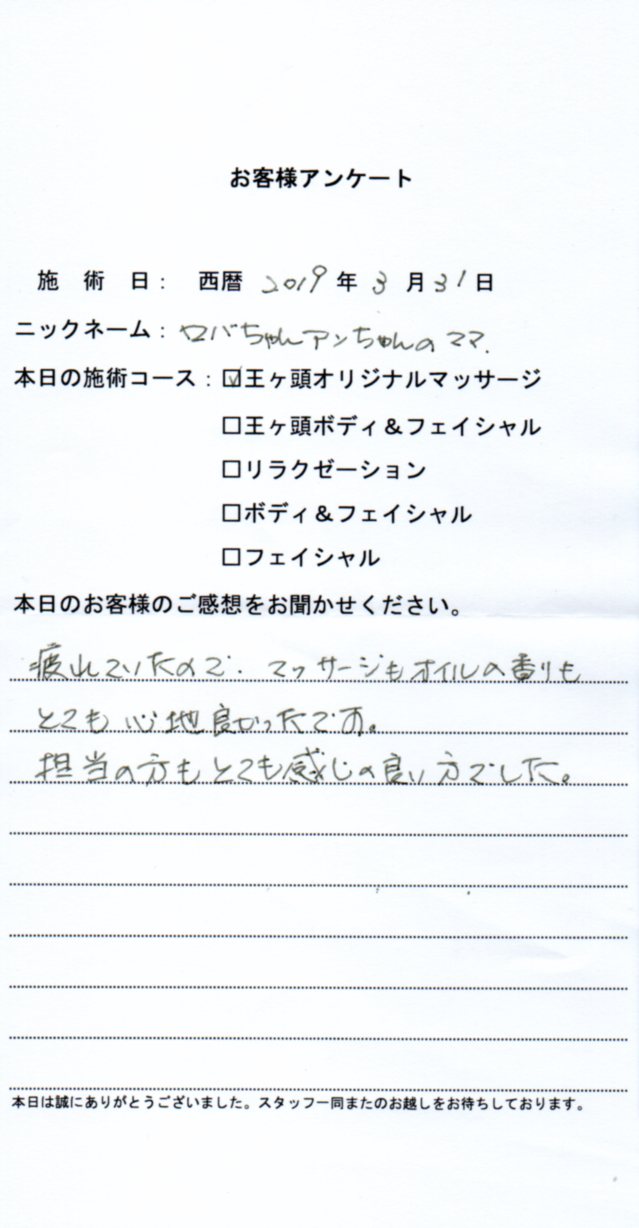 お客様アンケート
施術日： 西暦 2019 年 3 月 31 日
ニックネーム：ロバちゃんアンちゃんのママ.
本日の施術コース：☑王ヶ頭オリジナルマッサージ
□王ヶ頭ボディ＆フェイシャル
□リラクゼーション
□ボディ＆フェイシャル
□フェイシャル
本日のお客様のご感想をお聞かせください。
疲れていたので、マッサージもオイルの香りも
とても心地良かったです。
担当の方もとても感じの良い方でした。
本日は誠にありがとうございました。スタッフ一同またのお越しをお待ちしております。